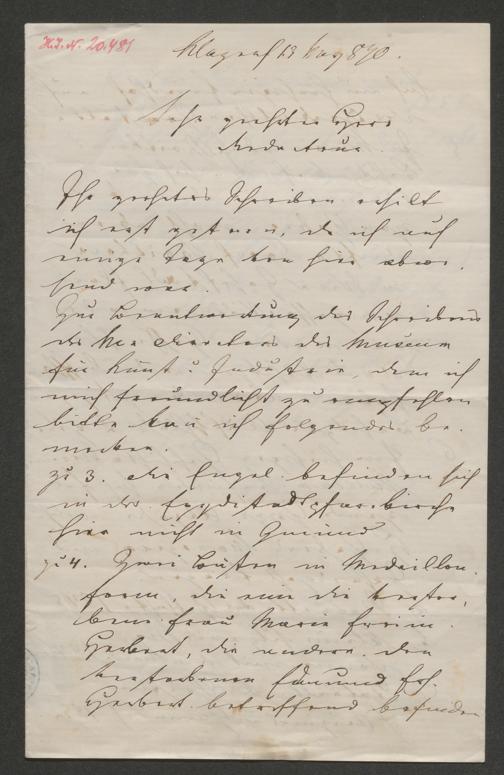 H. I. N. 20.481
Klagenf 13 Aug 870.
Sehr geehrter Herr
Redacteur
Ihr geehrtes Schreiben erhilt
ich erst gestern, da ich auf
einige Tage von hier abwe.
send war.
Zur Beantwortung des Schreibens
des Directors des Museum
für Kunst u Industrie, dem ich
mich freundlichst zu empfehlen
bitte kan ich folgendes be.
merken.
zu 3. die Engel befinden sich
in der Egydi Stadtpfarrkirche
hier nicht in Gmünd
zu 4. Zwei Büsten in Medaillon.
form, die eine die verstor,
bene Frau Maria Freiin.
Herbert, die andere den
verstorbenen Edmund Frh.
Herbert betreffend befinden